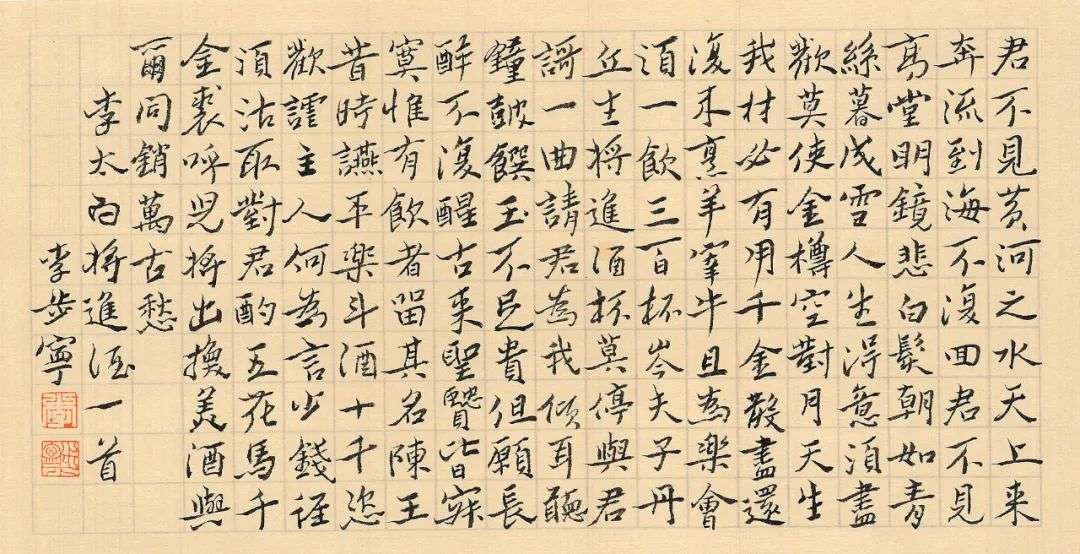 君不見黃河之水天上来
奔流到海不復回君不見
高堂明鏡悲白髮朝如青
絲暮成雪人生得意須盡
歡莫使金樽空對月天生
我材必有用千金散盡還
復来烹羊宰牛且為樂會
須一飲三百杯岑夫子丹
丘生將進酒杯莫停與君
謌一曲請君為我傾耳聽
鐘鼓饌玉不足貴但願長
醉不復醒古来聖賢皆寂
寞惟有飲者留其名陳王
昔時讌平樂斗酒十千恣
歡謔主人何為言少錢徑
須沽取對君酌五花馬千
金裘呼兒將出換美酒與
爾同銷萬古愁
李太白將進酒一首
李步寧